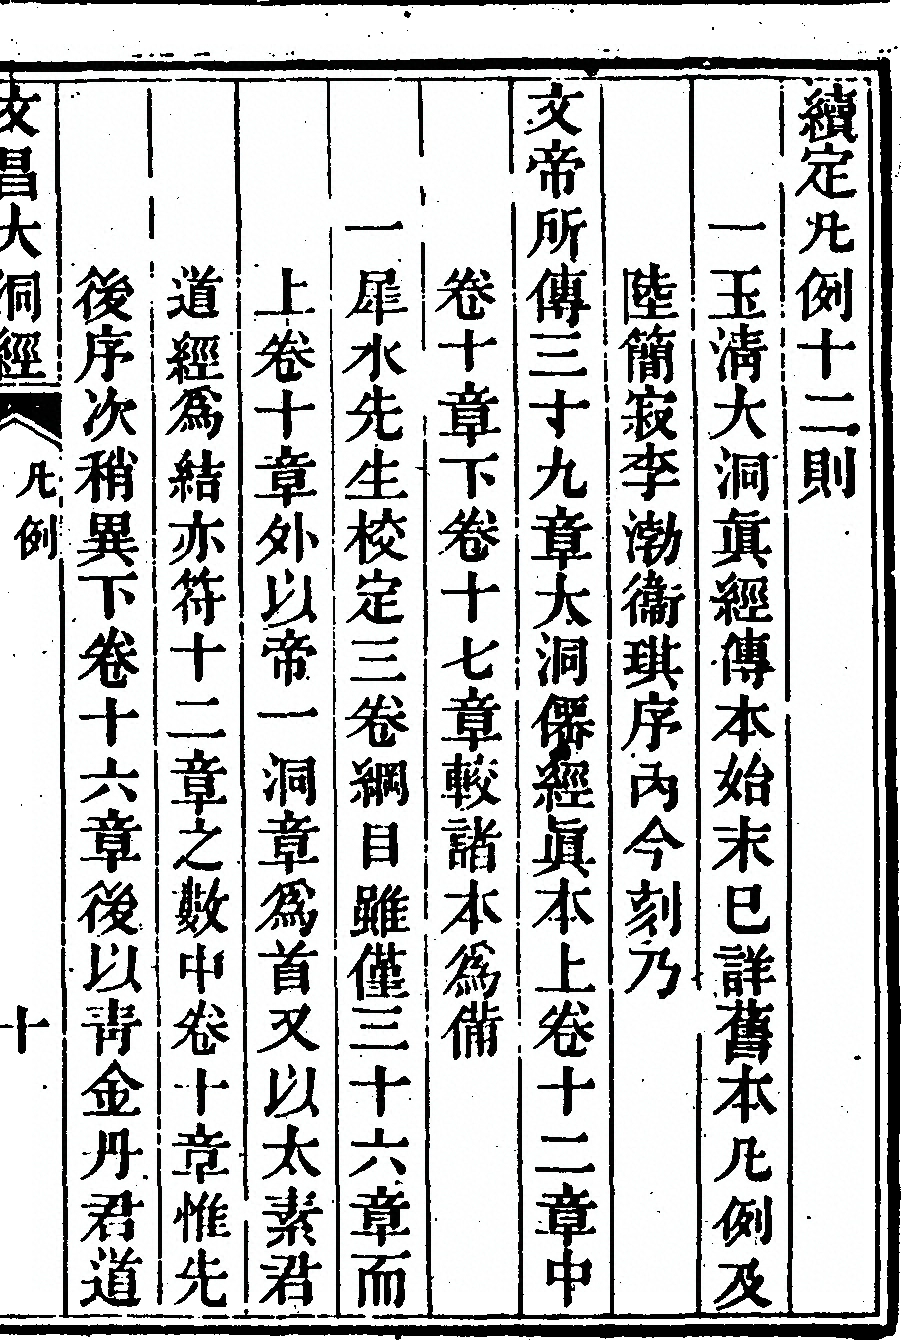 續定凡例十二則
一玉淸大洞眞經傳本始末巳詳舊本凡例及
陸簡寂李渤衞琪序內今刻乃
文帝所傳三十九章大洞僊經眞本上卷十二章中
卷十章下卷十七章較諸本爲備
一犀水先生校定三卷綱目雖僅三十六章而
上卷十章外以帝一洞章爲首又以太素君
道經爲結亦符十二章之數中卷十章惟先
後序次稍異下卷十六章後以靑金丹君道
文昌大洞經 凡例 十